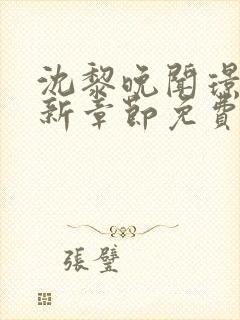 沈黎晚聞璟
新章節免費
張璧